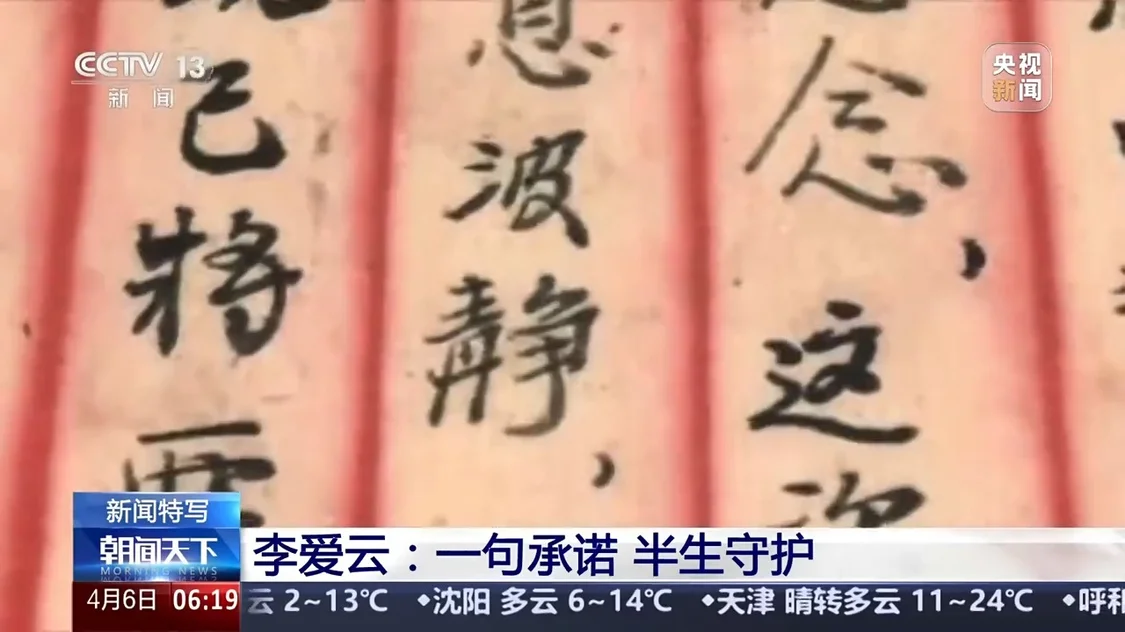 CCTV 13
新闻
央视
新闻
念，这次
息波静，
已将
新闻特写
朝闻天下
MORNING NEWS
李爱云：一句承诺 半生守护
4月6日 06:19
云 2~13℃ ◆沈阳 多云 6~14℃ ◆天津 晴转多云 11~24℃ ◆呼和